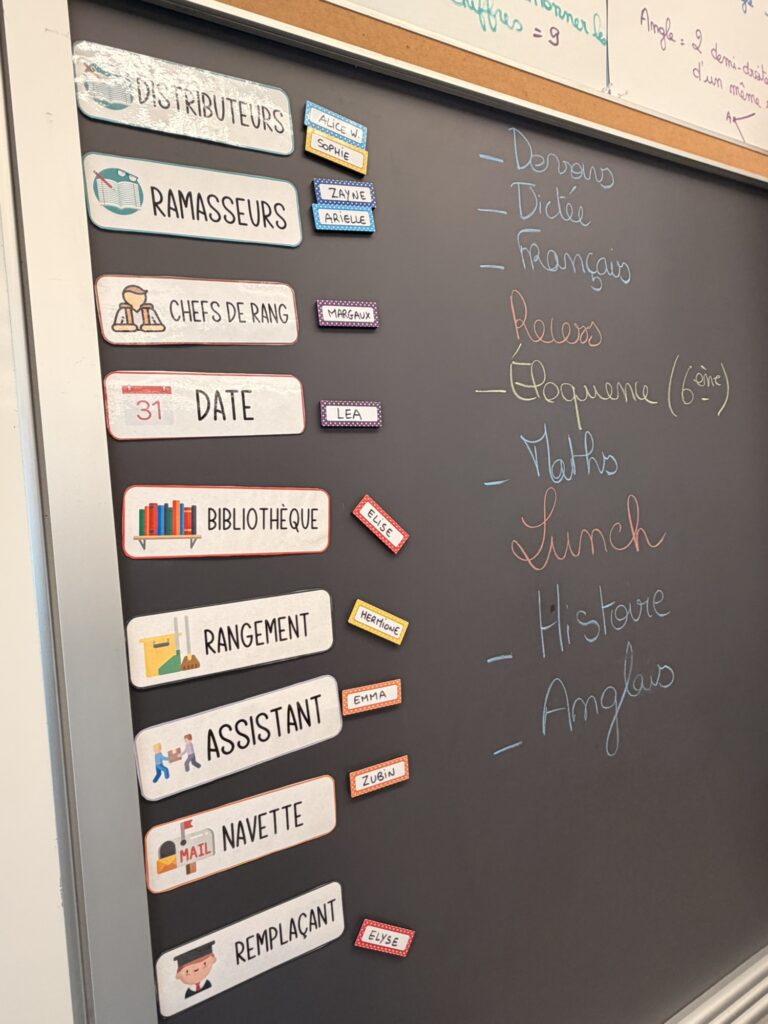 chiffres = 9
Angle = 2 demi-droites
d'un même
A
DISTRIBUTEURS
ALICE W.
SOPHIE
RAMASSEURS
ZAYNE
ARIELLE
CHEFS DE RANG
MARGAUX
31
DATE
LEA
BIBLIOTHÈQUE
ELISE
RANGEMENT
HERMIONE
ASSISTANT
EMMA
MAIL
NAVETTE
ZUBIN
REMPLAÇANT
ELYSE
– Devoirs
– Dictée
– Français
Recess
– Éloquence (6ème)
– Maths
Lunch
– Histoire
– Anglais